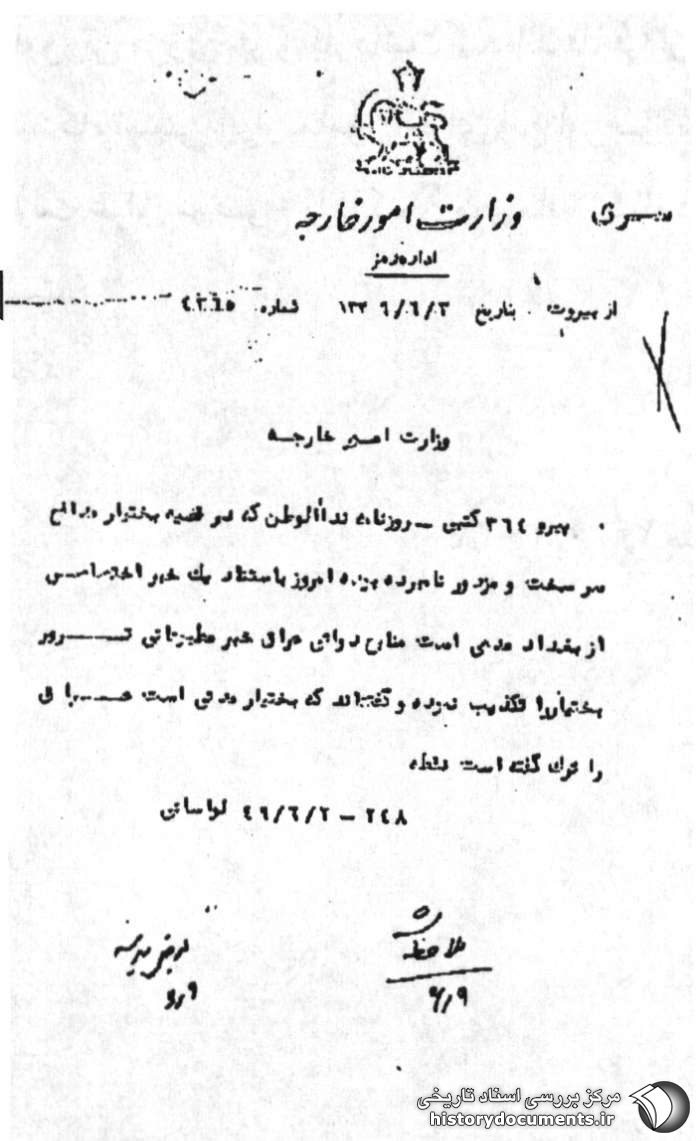 وزارت امور خارجه
سری
اداره رمز
از بیروت بتاریخ ۱۳۴۹/۶/۳ شماره
وزارت امور خارجه
پیرو ۳۶٤ کتبی – روزنامه نداآلوطن که در قضیه بختیار مدافع
سر سخت و مزدور نامبرده بوده امروز باستناد یک خبر اختصاصی
از بغداد مدعی است منابع دولتی عراق خبر مطبوعاتی ترور
بختیار را تکذیب نموده و گفته‌اند که بختیار مدتی است عراق
را ترک گفته است نقطه
۲٤۸ – ٤۹/۶/۲ لواسانی
ملاحظه شد
۶/۹
بعرض میرسد
۶/۹
مرکز بررسی اسناد تاریخی
historydocuments.ir